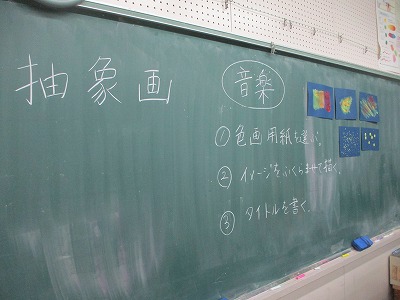 抽象画
音楽
① 色画用紙を選ぶ。
② イメージをふくらませて描く。
③ タイトルを書く。